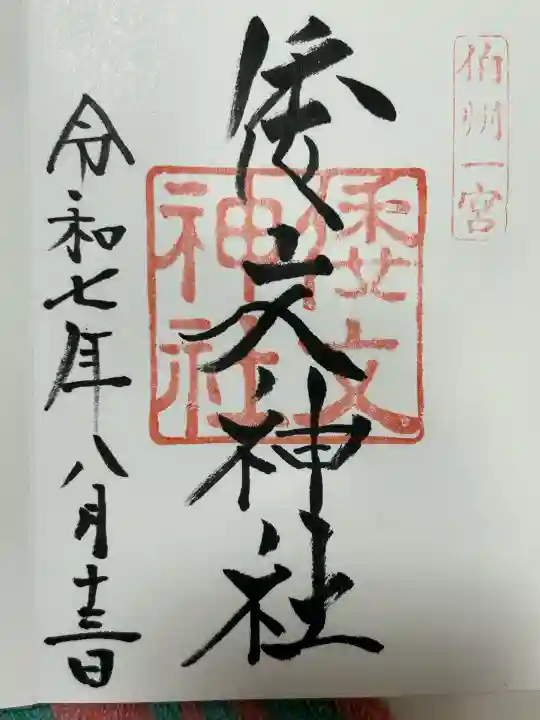 伯州一宮
倭文神社
倭文神社
令和七年八月十三日